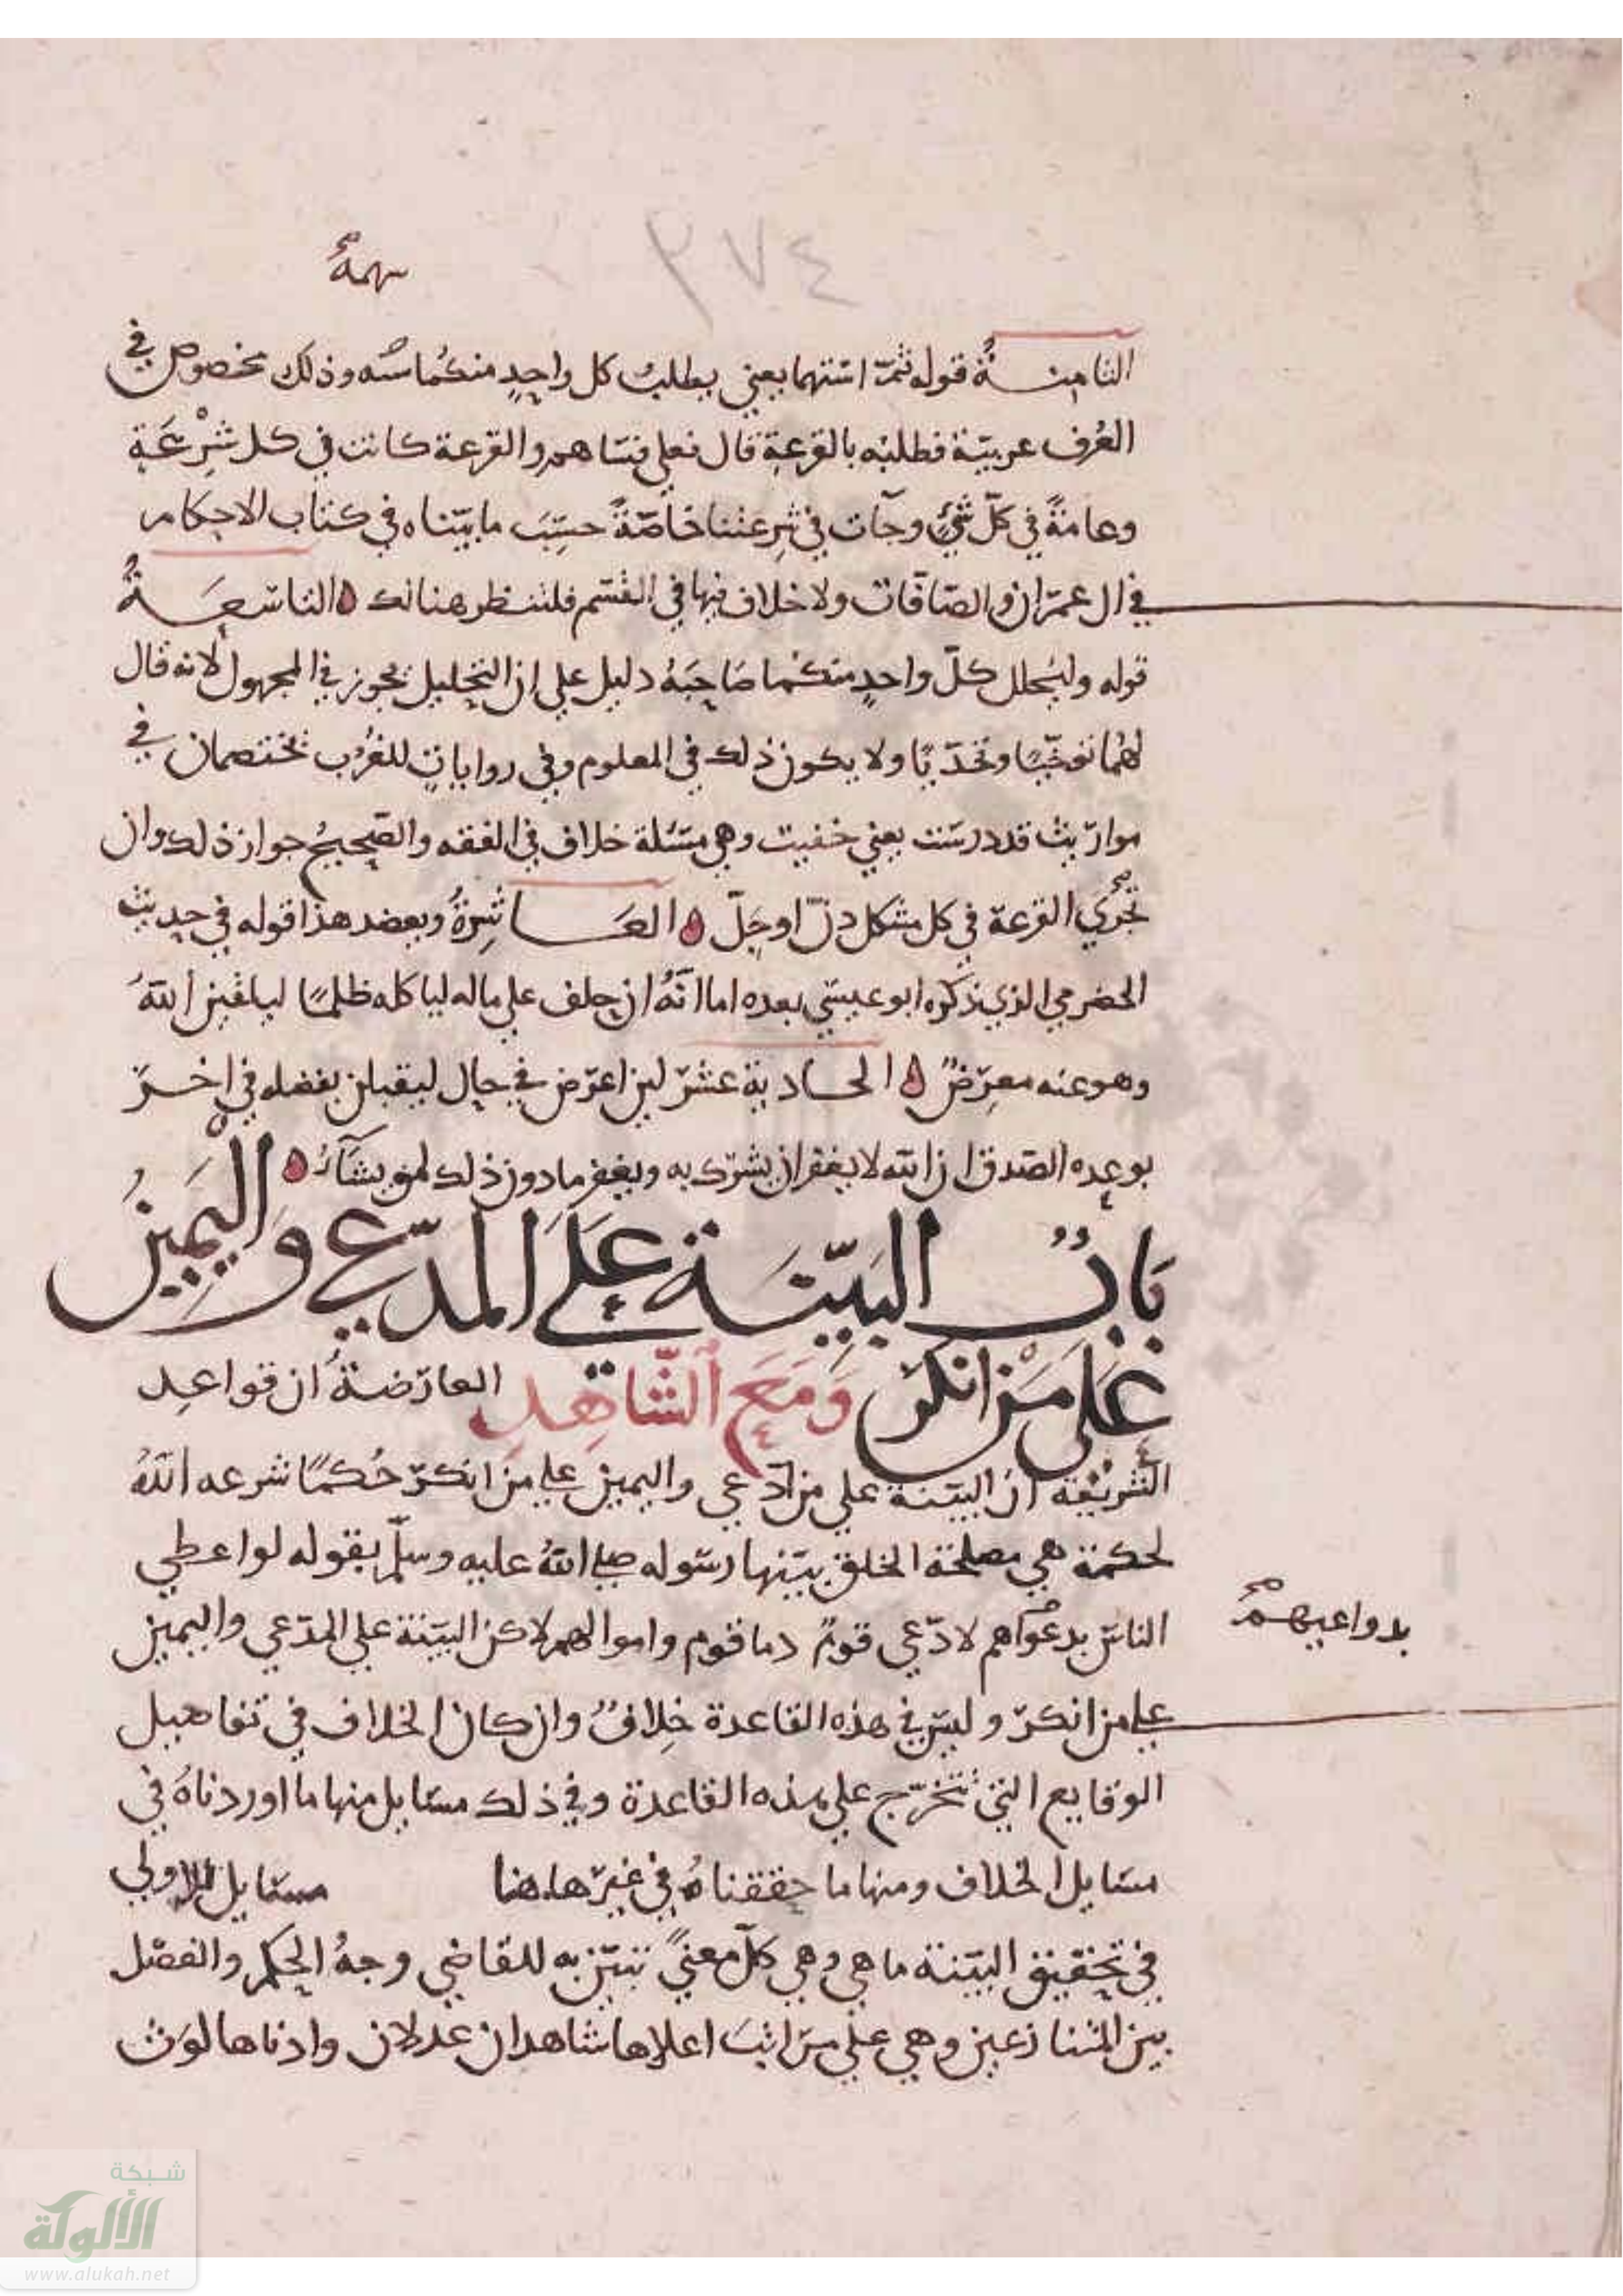 ٣٧٤
سهمه
الثامنة قوله ثم استهما يعني يطلب كل واحد منكما وذلك مخصوص في
العرف عربية فطلبه بالقرعة قال فعلي فتساهم والقرعة كانت في كل شرعة
وعامة في كل شيء وجآت في شرعتنا خاصة حسب ما بيناه في كتاب الاحكام
في ال عمران والصافات ولا خلاف فيها في القسم فلتنظر هنالك التاسعة
قوله وليحلل كل واحد منكما صاحبه دليل على ان التحليل يجوز في المجهول لانه قال
لهما توخيا وتحديا ولا يكون ذلك في المعلوم وفي روايات للغرب تختصمان في
مواريث قد درست يعني خفيت وهي مسئلة خلاف في الفقه والصحيح جواز ذلك وان
تجري القرعة في كل مشكل دق او جل العاشرة ويعضد هذا قوله في حديث
الحضرمي الذي ذكره ابو عيسى بعده اما انه ان حلف على ماله لياكله ظلما ليلقين الله
وهو عنه معرض الحادية عشر لين اعرض في حال ليقبلن بفضله في اخر
بوعده الصدق ان الله لا يغفر ان يشرك به ويغفر ما دون ذلك لمن يشآء
باب البينة على المدعي واليمين
على من انكر ومع الشاهد العارضة ان قواعد
الشريعة ان البينة على من ادعى واليمين على من انكر حكما شرعه الله
لحكمة هي مصلحة الخلق بينها رسوله صلى الله عليه وسلم بقوله لو اعطي
الناس بدعواهم لادعى قوم دما قوم واموالهم لاكن البينة على المدعي واليمين
بدواعيهم
على من انكر وليس في هذه القاعدة خلاف وان كان الخلاف في تفاصيل
الوقايع التي تتخرج على هذه القاعدة وفي ذلك مسايل منها ما اوردناه في
مسايل الخلاف ومنها ما حققناه في غيرها هنا مسايل الاولى
في تحقيق البينة ما هي وهي كل معنى تبين به للقاضي وجه الحكم والفصل
بين المتنازعين وهي على مراتب اعلاها شاهدان عدلان وادناها لوث
شبكة
الألوكة
www.alukah.net